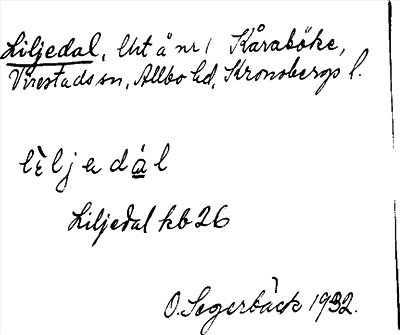 Liljedal, Utt å nr 1 Kåraböke,
Virestads sn, Allbo hd, Kronobergs l.
lìljedál
Liljedal kb 26
O. Segerbäck 1932.